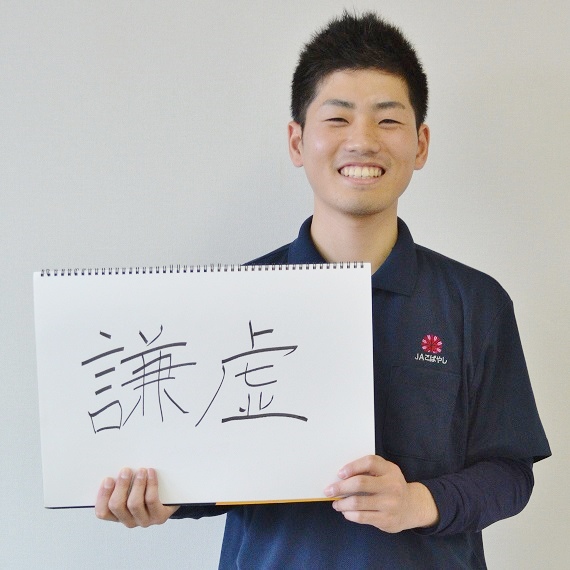 謙虚
JAこばやし